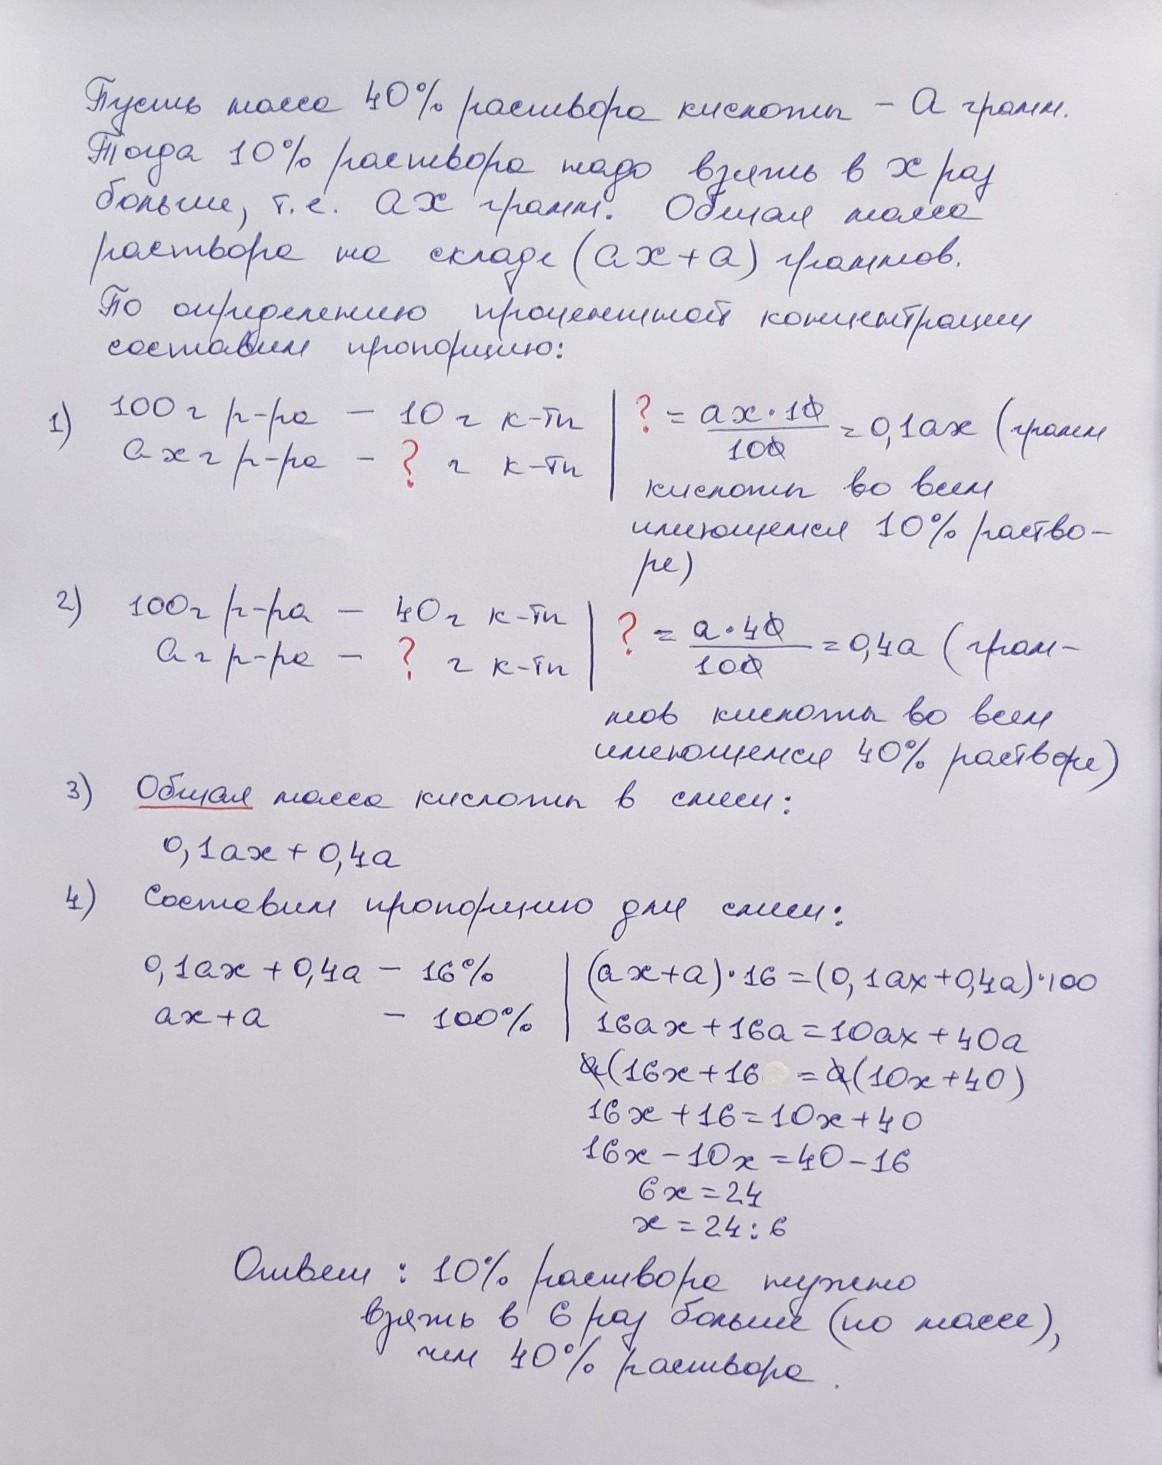 Пусть масса 40% раствора кислоты – a грамм.
Тогда 10% раствора надо взять в x раз
больше, т.е. ax грамм. Общая масса
раствора на складе (ax+a) граммов.
По определению процентной концентрации
составим пропорцию:
1) 100г р-ра – 10 г к-ты | ? = ax·10/100 = 0,1ax (грамм
axг р-ра – ? г к-ты
кислоты во всем
имеющемся 10% раство-
ре)
2) 100г р-ра – 40г к-ты | ? = a·40/100 = 0,4a (грам-
aг р-ра – ? г к-ты
мов кислоты во всем
имеющемся 40% растворе)
3) Общая масса кислоты в смеси:
0,1ax + 0,4a
4) Составим пропорцию для смеси:
0,1ax + 0,4a – 16% | (ax+a)·16=(0,1ax+0,4a)·100
ax+a – 100% | 16ax+16a=10ax+40a
a(16x+16 = a(10x+40)
16x+16=10x+40
16x–10x=40–16
6x=24
x=24:6
Ответ: 10% раствора нужно
взять в 6 раз больше (по массе),
чем 40% раствора.